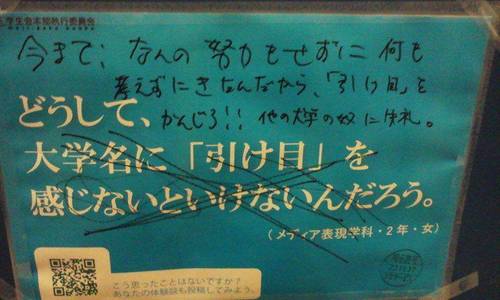 学生会本部執行委員会
今まで、なんの努力もせずに何も
考えずにきなんだから、「引け目」を
かんじろ!! 他の大学の奴に失礼。
どうして、
大学名に「引け目」を
感じないといけないんだろう。
(メディア表現学科・2年・女)
こう思ったことはないですか?
あなたの体験談も投稿してみよう。